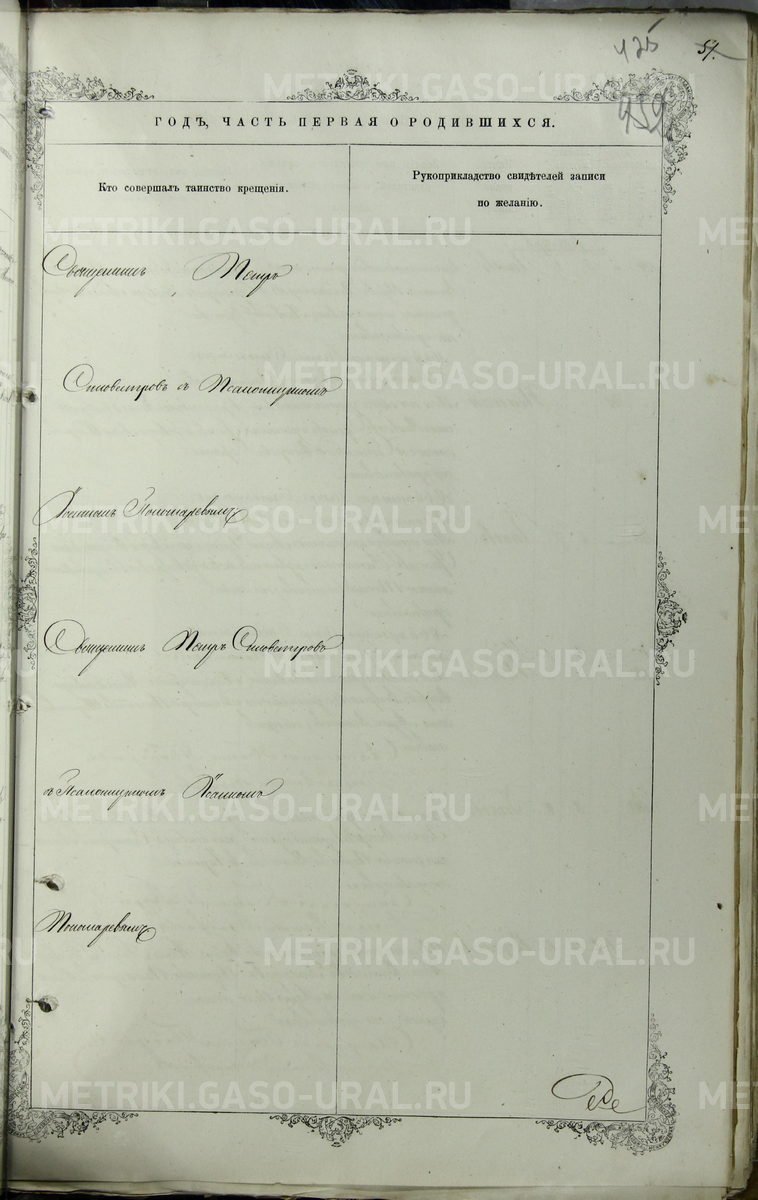 125 51.
459
ГОДЪ, ЧАСТЬ ПЕРВАЯ О РОДИВШИХСЯ.
Кто совершалъ таинство крещенія.
Рукоприкладство свидѣтелей записи
по желанію.
Священникъ Петръ
Сильвестровъ съ Псаломщикомъ
Іоанномъ Пономаревымъ
Священникъ Петръ Сильвестровъ
съ Псаломщикомъ Іоанномъ
Пономаревымъ
METRIKI.GASO-URAL.RU